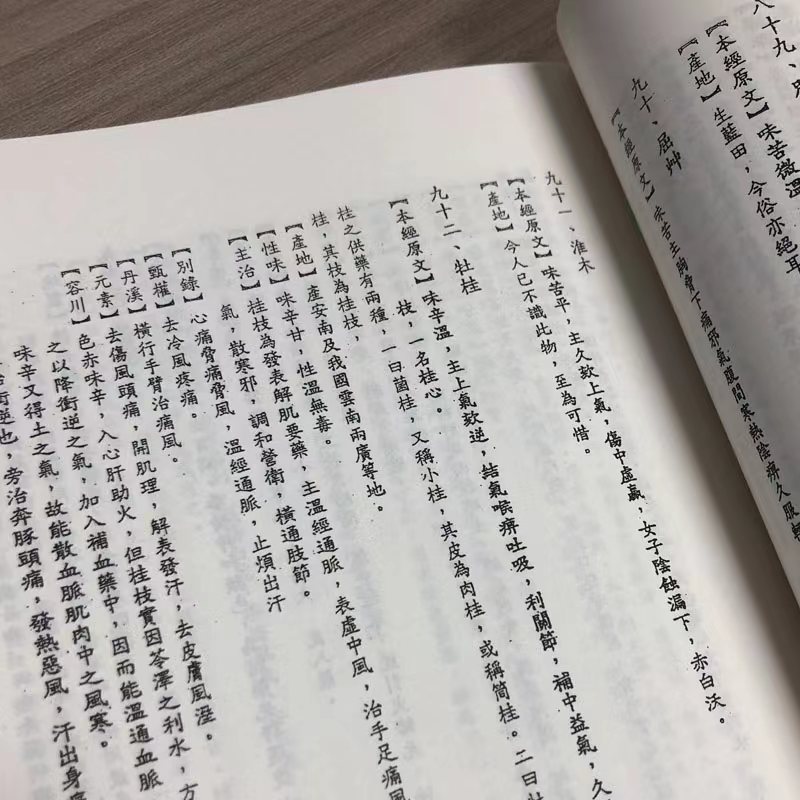 八十九、
【本經原文】味苦微溫
【產地】生藍田，今俗亦絕耳
九十、屈艸
【本經原文】味苦主胸脅下痛邪氣腹間寒熱陰痹久服輕
九十一、淮木
【本經原文】味苦平，主久欬上氣，傷中虛羸，女子陰蝕漏下，赤白沃。
【產地】今人已不識此物，至為可惜。
九十二、牡桂
【本經原文】味辛溫，主上氣欬逆，結氣喉痹吐吸，利關節，補中益氣，久
枝，一名桂心。
桂之供藥有兩種，一曰箇桂，又稱小桂，其皮為肉桂，或稱筒桂。二曰牡
桂，其枝為桂枝，
【產地】產安南及我國雲南兩廣等地。
【性味】味辛甘，性溫無毒。
【主治】桂枝為發表解肌要藥，主溫經通脈，表虛中風，治手足痛風
氣，散寒邪，調和營衛，橫通肢節。
【別錄】心痛脅痛脅風，溫經通脈，止煩出汗
【甄權】去冷風疼痛。
【丹溪】橫行手臂治痛風。
【元素】去傷風頭痛，開肌理，解表發汗，去皮膚風溼。
【容川】色赤味辛，入心肝助火，但桂枝實因苓澤之利水，方
之以降衝逆之氣，加入補血藥中，因而能溫通血脈
味辛又得土之氣，故能散血脈肌肉中之風寒。
衝逆也，旁治奔豚頭痛，發熱惡風，汗出身